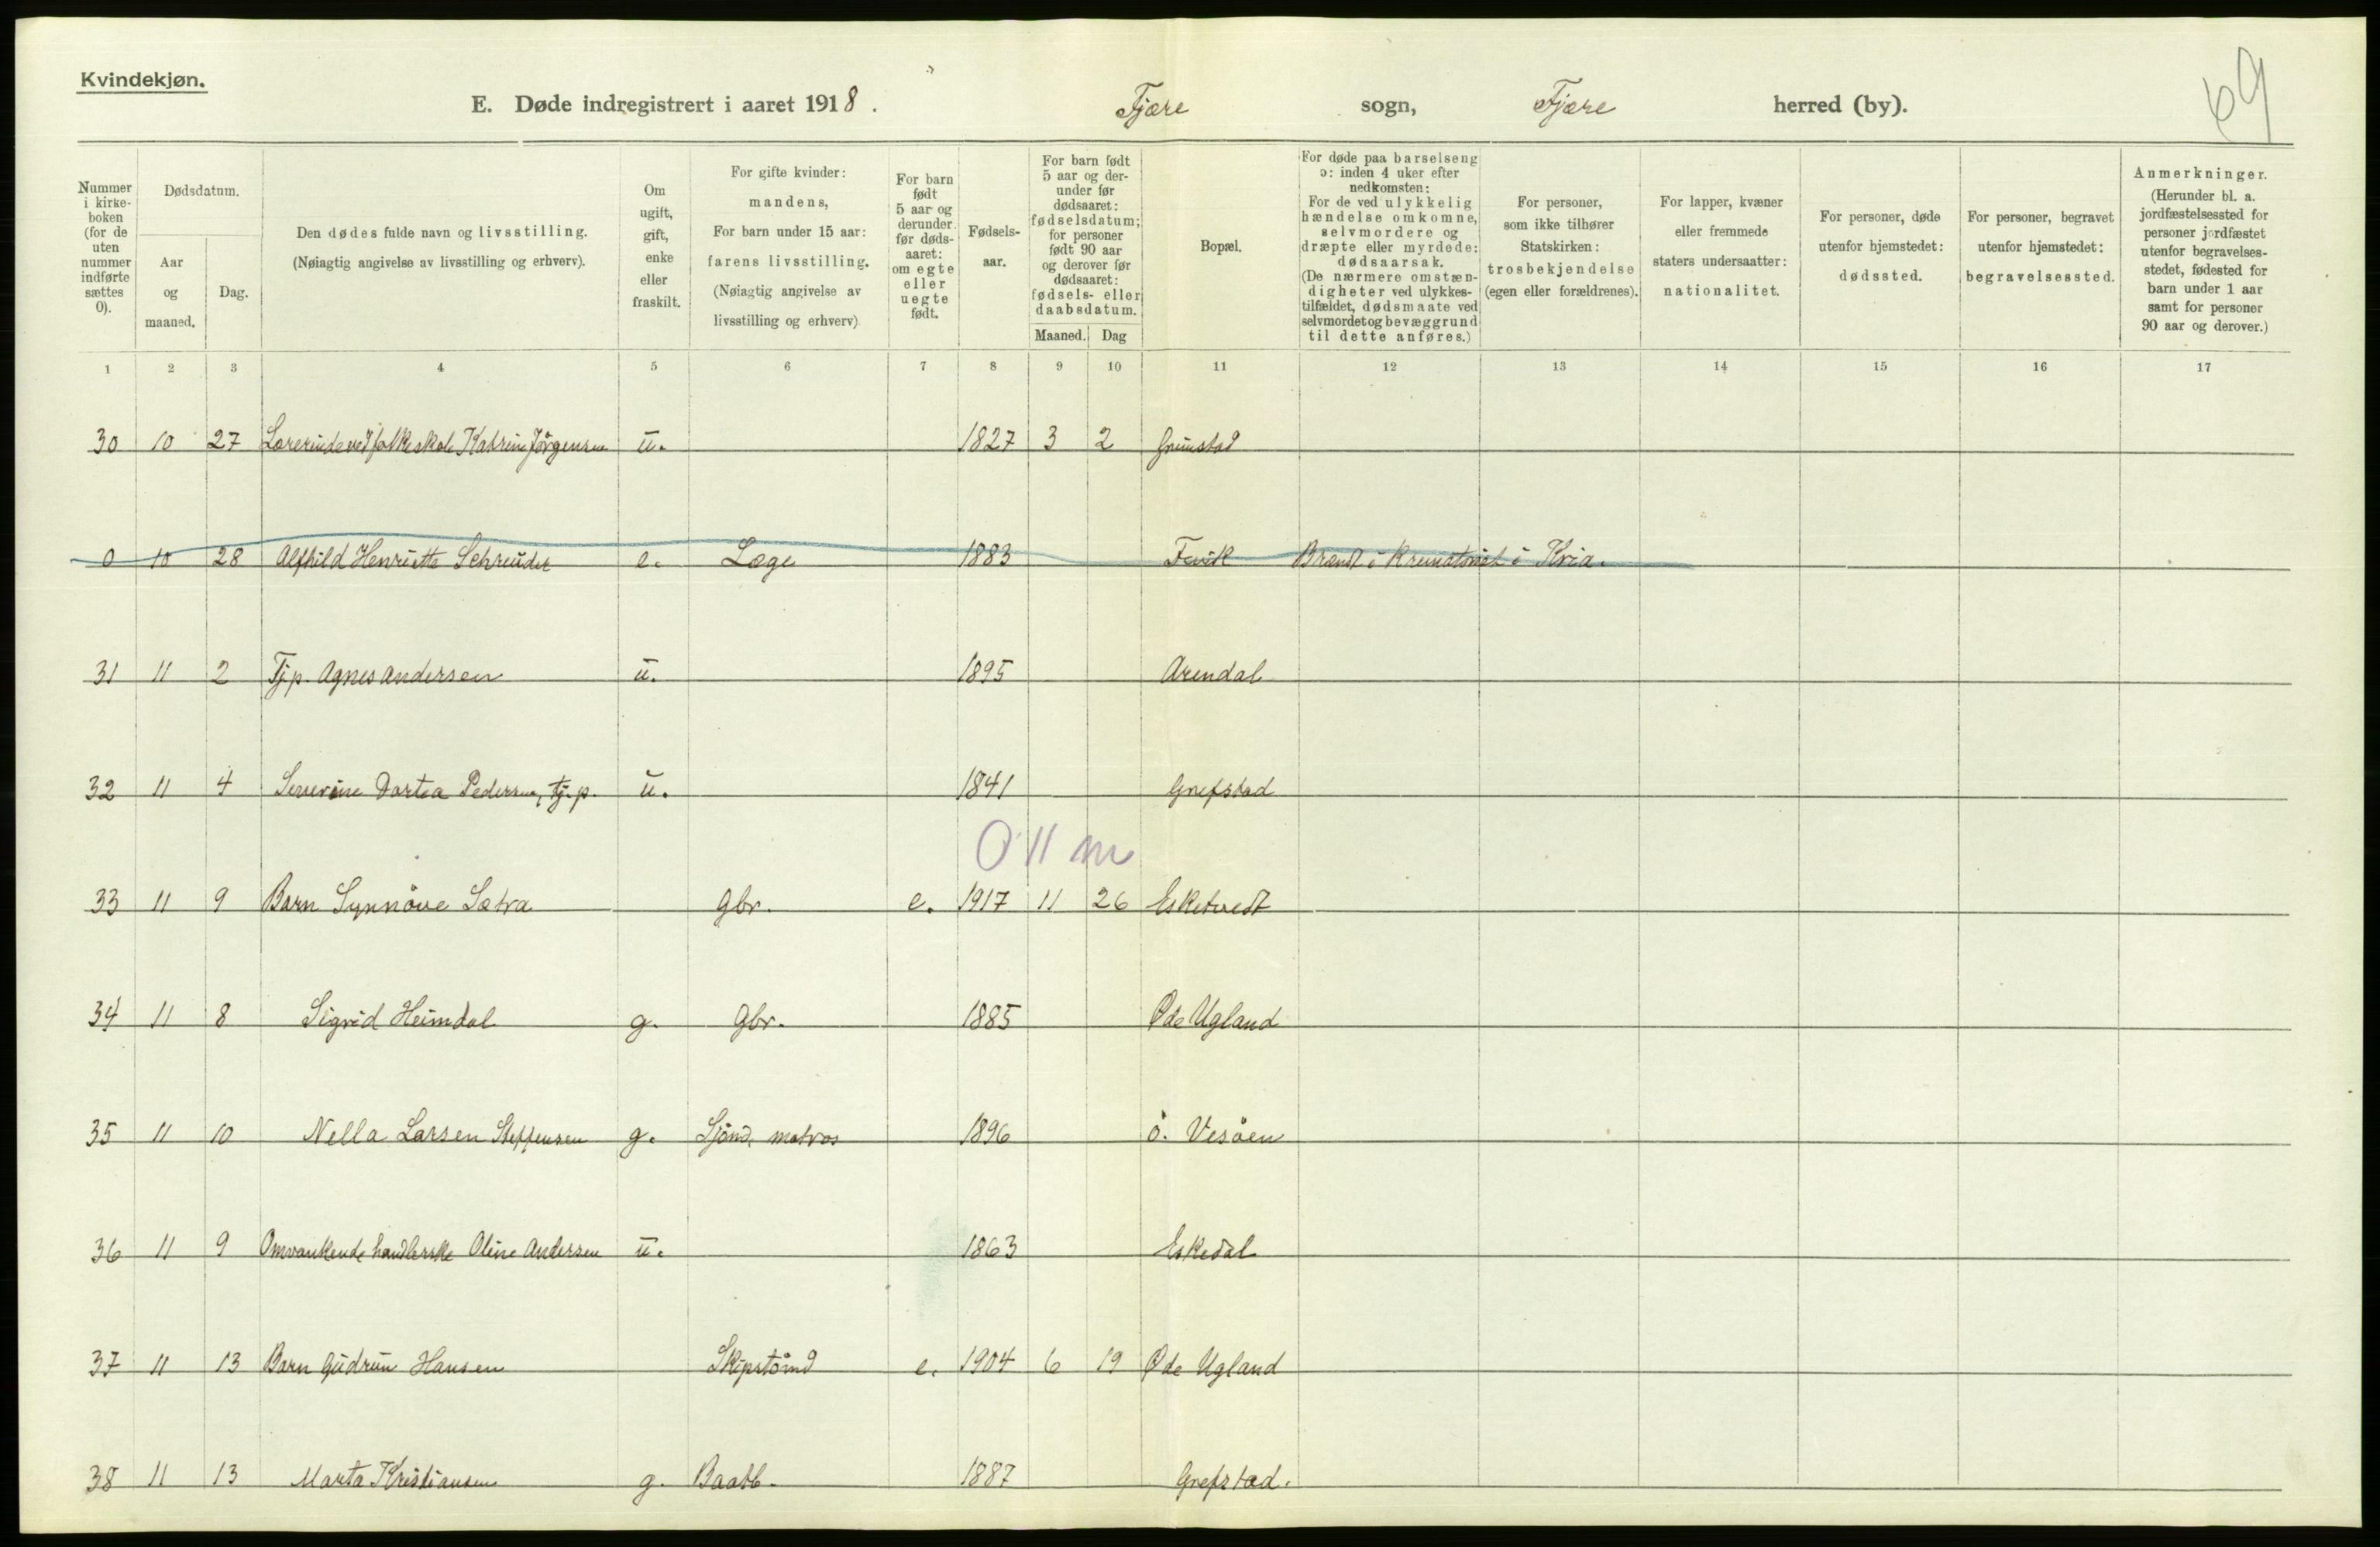 Kvindekjøn.
69
E. Døde indregistrert i aaret 1918. Fjære sogn, Fjære herred (by).
Nummer i kirke-boken (for de uten nummer indførte sættes 0).
Dødsdatum.
Aar og maaned.
Dag.
Den dødes fulde navn og livsstilling.
(Nøiagtig angivelse av livsstilling og erhverv).
Om ugift, gift, enke eller fraskilt.
For gifte kvinder: mandens,
For barn under 15 aar: farens livsstilling.
(Nøiagtig angivelse av livsstilling og erhverv)
For barn født 5 aar og derunder før døds-aaret: om egte eller uegte født.
Fødsels-aar.
For barn født 5 aar og der-under før dødsaaret: fødselsdatum; for personer født 90 aar og derover før dødsaaret: fødsels- eller daabsdatum.
Maaned. Dag
Bopæl.
For døde paa barselseng ɔ: inden 4 uker efter nedkomsten:
For de ved ulykkelig hændelse omkomne, selvmordere og dræpte eller myrdede: dødsaarsak.
(De nærmere omstæn-digheter ved ulykkes-tilfældet, dødsmaate ved selvmordet og bevæggrund til dette anføres.)
For personer, som ikke tilhører Statskirken: trosbekjendelse (egen eller forældrenes).
For lapper, kvæner eller fremmede staters undersaatter: nationalitet.
For personer, døde utenfor hjemstedet: dødssted.
For personer, begravet utenfor hjemstedet: begravelsessted.
Anmerkninger.
(Herunder bl. a. jordfæstelsessted for personer jordfæstet utenfor begravelses-stedet, fødested for barn under 1 aar samt for personer 90 aar og derover.)
1 2 3 4 5 6 7 8 9 10 11 12 13 14 15 16 17
30 10 27 Lærerinde ved folkeskole Katrine Jörgensen u. 1827 3 2 Grimstad
0 10 28 Alfhild Henriette Schreuder e. Læge 1883 Fevik Brændt i Krematoriet i Kria.
31 11 2 Tjp. Agnes Andersen u. 1895 Arendal
32 11 4 Severine Dortea Pedersen, tj.p. u. 1841 Grefstad
0 11 m
33 11 9 Barn Synnöve Sætra Gbr. e. 1917 11 26 Esketvedt
34 11 8 Sigrid Heimdal g. Gbr. 1885 Øde Ugland
35 11 10 Nella Larsen Steffensen g. Sjömd. matros 1896 ö. Vesöen
36 11 9 Omvankende handlerske Oline Andersen u. 1863 Eskedal
37 11 13 Barn Gudrun Hansen Skipstömd e. 1904 6 19 Øde Ugland
38 11 13 Marta Kristiansen g. Baatb. 1887 Grefstad.